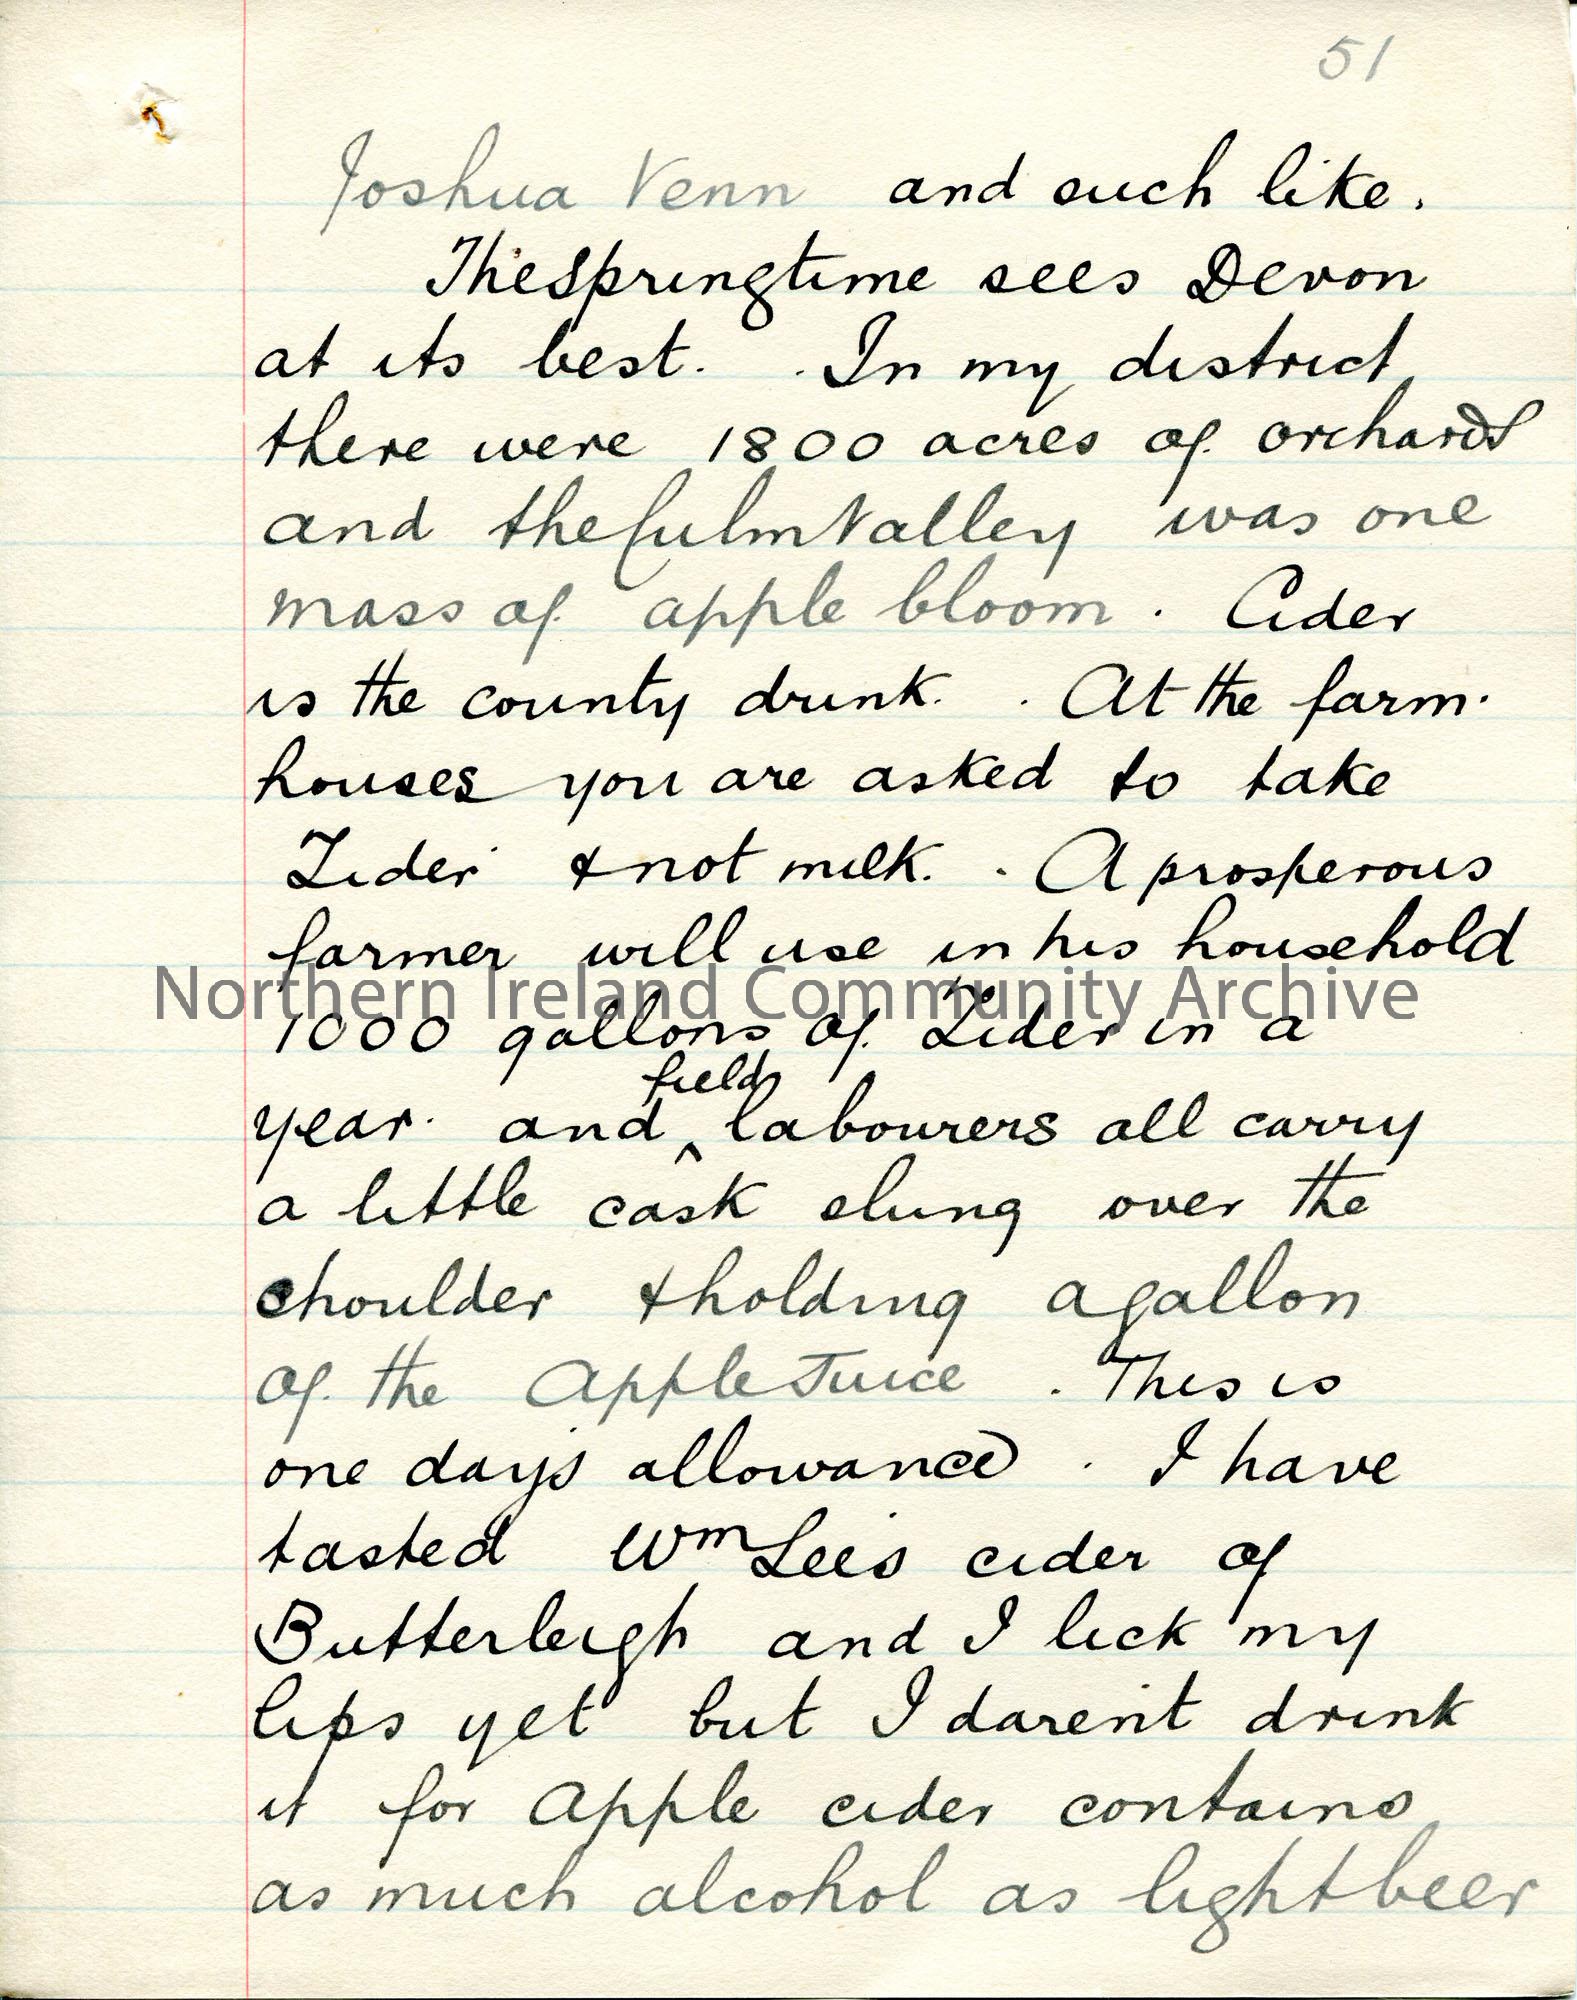 51
Joshua Venn and such like.
The Springtime sees Devon
at its best. . In my district
there were 1800 acres of orchards
and the Culm Valley was one
mass of apple bloom. Cider
is the county drink. . At the farm-
houses you are asked to take
Zider & not milk. . A prosperous
farmer will use in his household
Northern Ireland Community Archive
1000 gallons of Zider in a
field
year. and ^ labourers all carry
a little cask slung over the
shoulder & holding a gallon
of the Apple Juice. This is
one day's allowance. I have
tasted Wm Lee's cider of
Butterleigh and I lick my
lips yet but I daren't drink
it for Apple cider contains
as much alcohol as light beer